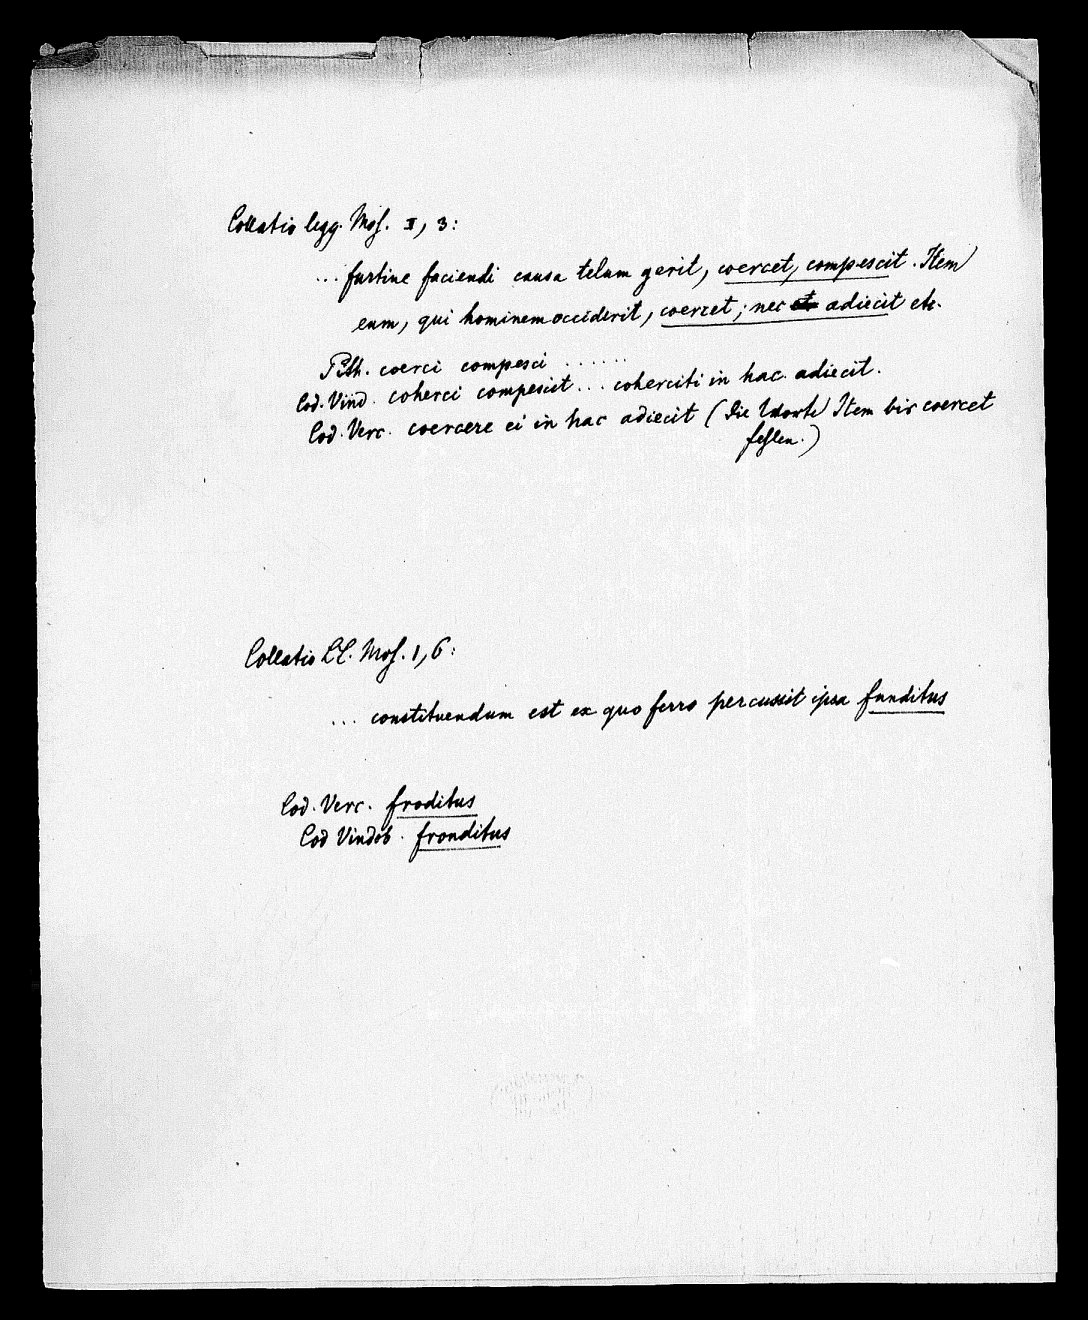 Collatio legg. Mos. I, 3:
... furtive faciendi causa telum gerit, coercet, compescit. Item
eum, qui hominem occiderit, coercet; nec et adiecit etc.
Pith. coerci compesci ......
Cod. Vind. coherci compescit ... coherciti in hac adiecit.
Cod. Verc. coercere ei in hac adiecit (die Worte Item bis coercet
fehlen.)
Collatio LL. Mos. 1, 6:
... constituendum est ex quo ferro percussit ipsa funditus
Cod. Verc. froditus
Cod Vindob. fronditus